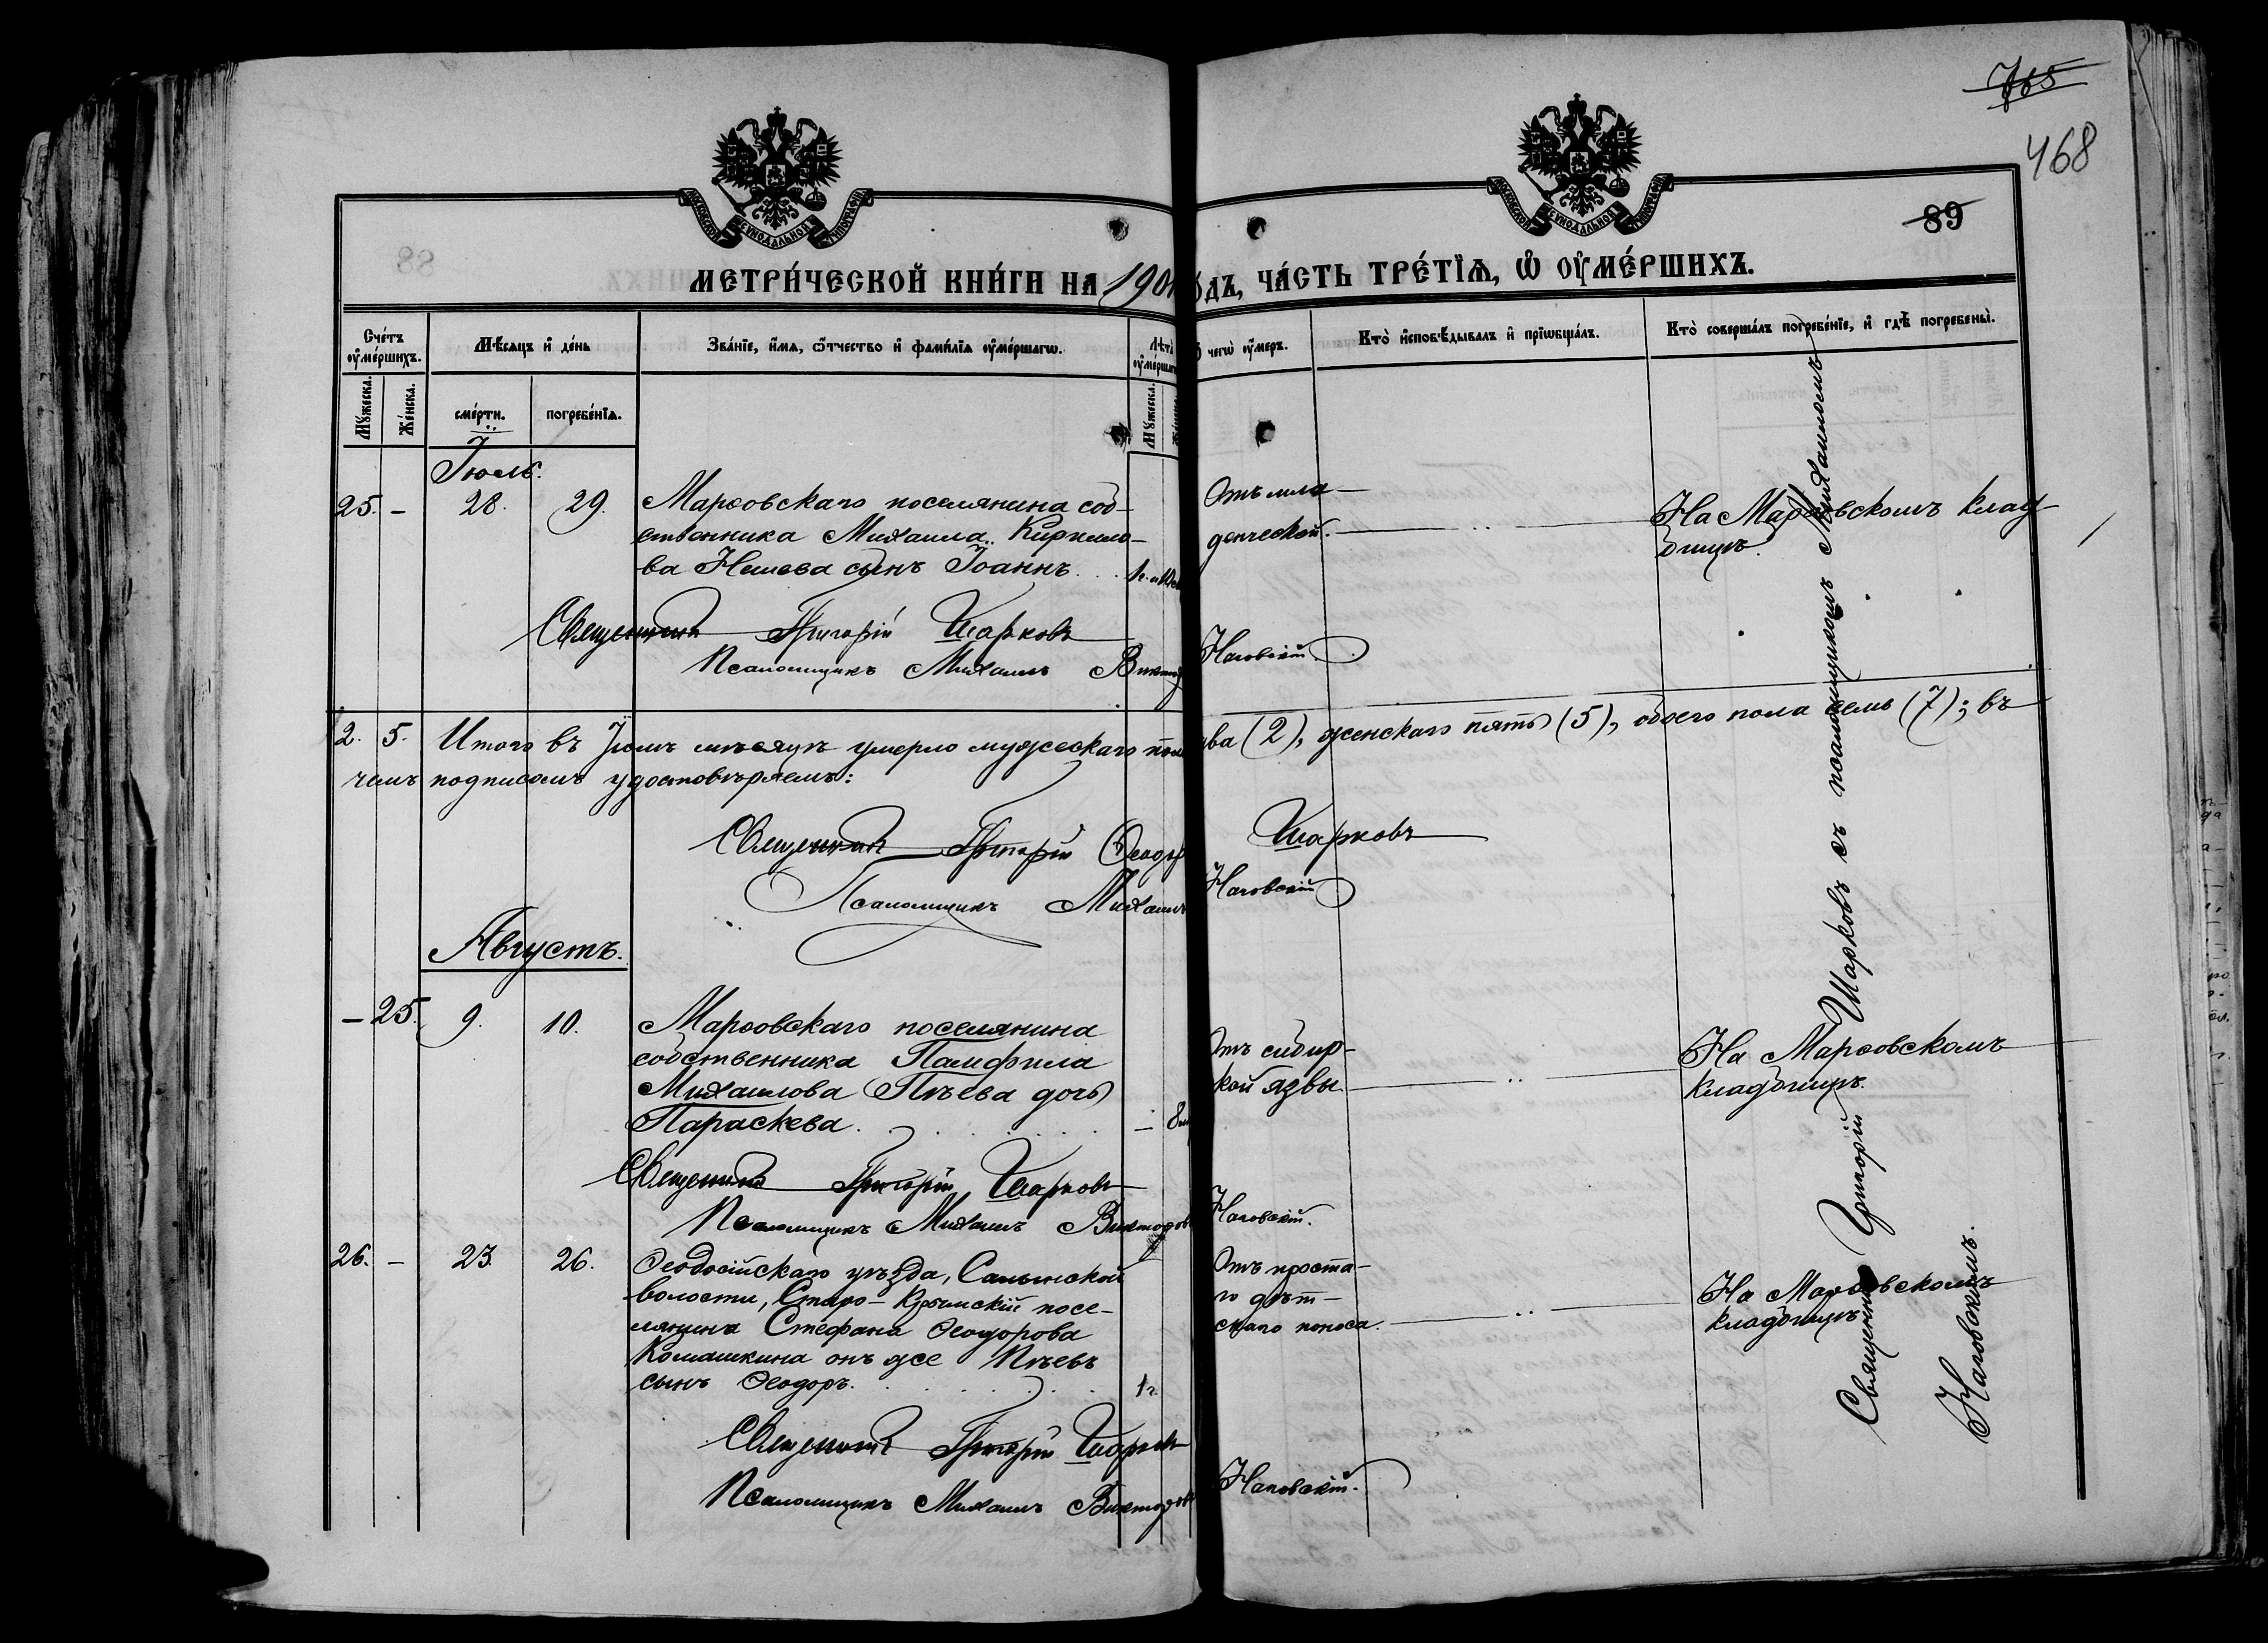 765
468
89
МЕТРИ́ЧЕСКОЙ КНИ́ГИ НА 190
О́ДЪ, ЧА́СТЬ ТРЕ́ТЇѦ, Ѡ҆ ОУ҆МЕ́РШИХЪ.
Сче́тъ оу҆ме́ршихъ.
Мѣ́сяцъ и҆ де́нь
Зва́нїе, и҆́мя, ѻ҆́тчество и҆ фами́лїя оу҆ме́ршагѡ.
Лѣ́та оу҆ме́ршаг
чегѡ̀ оу҆́меръ.
Кто̀ и҆сповѣ́дывалъ и҆ прїѡбща́лъ.
Кто̀ соверша́лъ погребе́нїе, и҆ гдѣ̀ погребены̀.
Мꙋ́жеска.
Же́нска.
сме́рти.
погребе́нїя.
Мꙋ́жеска.
Іюль.
25. — 28. 29. Марѳовскаго поселянина соб-
ственника Михаила Кирилло-
ва Нешева сынъ Іоаннъ
Отъ мла-
денческой.
На Марѳовскомъ клад-
бищѣ.
Священникъ Григорій Шарковъ
Псаломщикъ Михаилъ Викто
Наговскій.
2. 5. Итого въ Іюлѣ мѣсяцѣ умерло мужескаго пола
два (2), женскаго пять (5), обоего пола семь (7); въ
чемъ подписомъ удостовѣряемъ:
Священникъ Григорій Ѳеодо
Шарковъ
Псаломщикъ Михаилъ
Наговскій
Августъ.
— 25. 9. 10. Марѳовскаго поселянина
собственника Памфила
Михаилова Пѣева дочь
Параскева.
Отъ сибир-
кой язвы
На Марѳовскомъ
кладбищѣ.
Священникъ Григорій Шарковъ
Псаломщикъ Михаилъ Викторов
Наговскій.
26. — 23. 26. Ѳеодосійскаго уѣзда, Салынской
волости, Старо-Крымскій посе-
лянина Стефана Ѳеодорова
Комашкина онъ же Пѣевъ
сынъ Ѳеодоръ. 1 г.
Отъ проста-
го дѣт-
скаго поноса.
На Марѳовскомъ
кладбищѣ
Священникъ Григорій Шарковъ
Псаломщикъ Михаилъ Викторов
Наговскій.
Священникъ Григорій Шарковъ съ псаломщикомъ Михаиломъ
Наговскимъ.